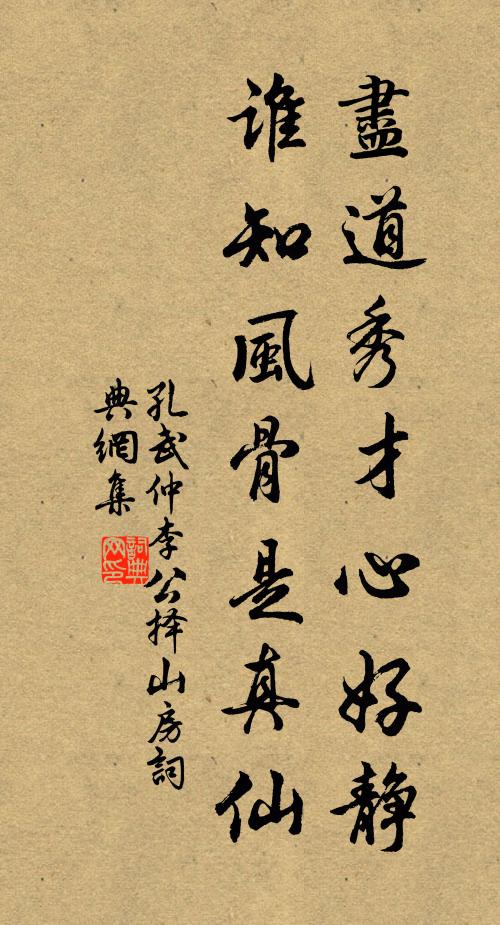 盡道秀才心好静
誰知風骨是真仙
孔武仲李公择山房詞
典網集
詞典
网印